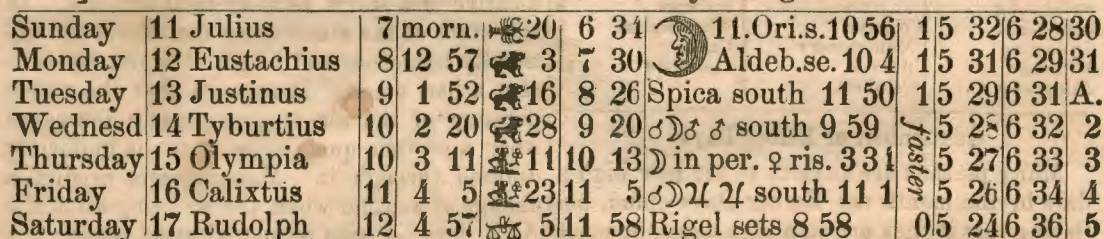 Sunday 11 Julius 7 morn. 20 6 34 11.Ori.s.10 56 1 5 32 6 28 30
Monday 12 Eustachius 8 12 57 3 7 30 Aldeb.se. 10 4 1 5 31 6 29 31
Tuesday 13 Justinus 9 1 52 16 8 26 Spica south 11 50 1 5 29 6 31 A.
Wednesd 14 Tyburtius 10 2 20 28 9 20 ☌☽♂ ♂ south 9 59 5 28 6 32 2
Thursday 15 Olympia 10 3 11 11 10 13 ☽ in per. ♀ ris. 3 31 faster 5 27 6 33 3
Friday 16 Calixtus 11 4 5 23 11 5 ☌☽♃ ♃ south 11 1 5 26 6 34 4
Saturday 17 Rudolph 12 4 57 ♎ 5 11 58 Rigel sets 8 58 0 5 24 6 36 5